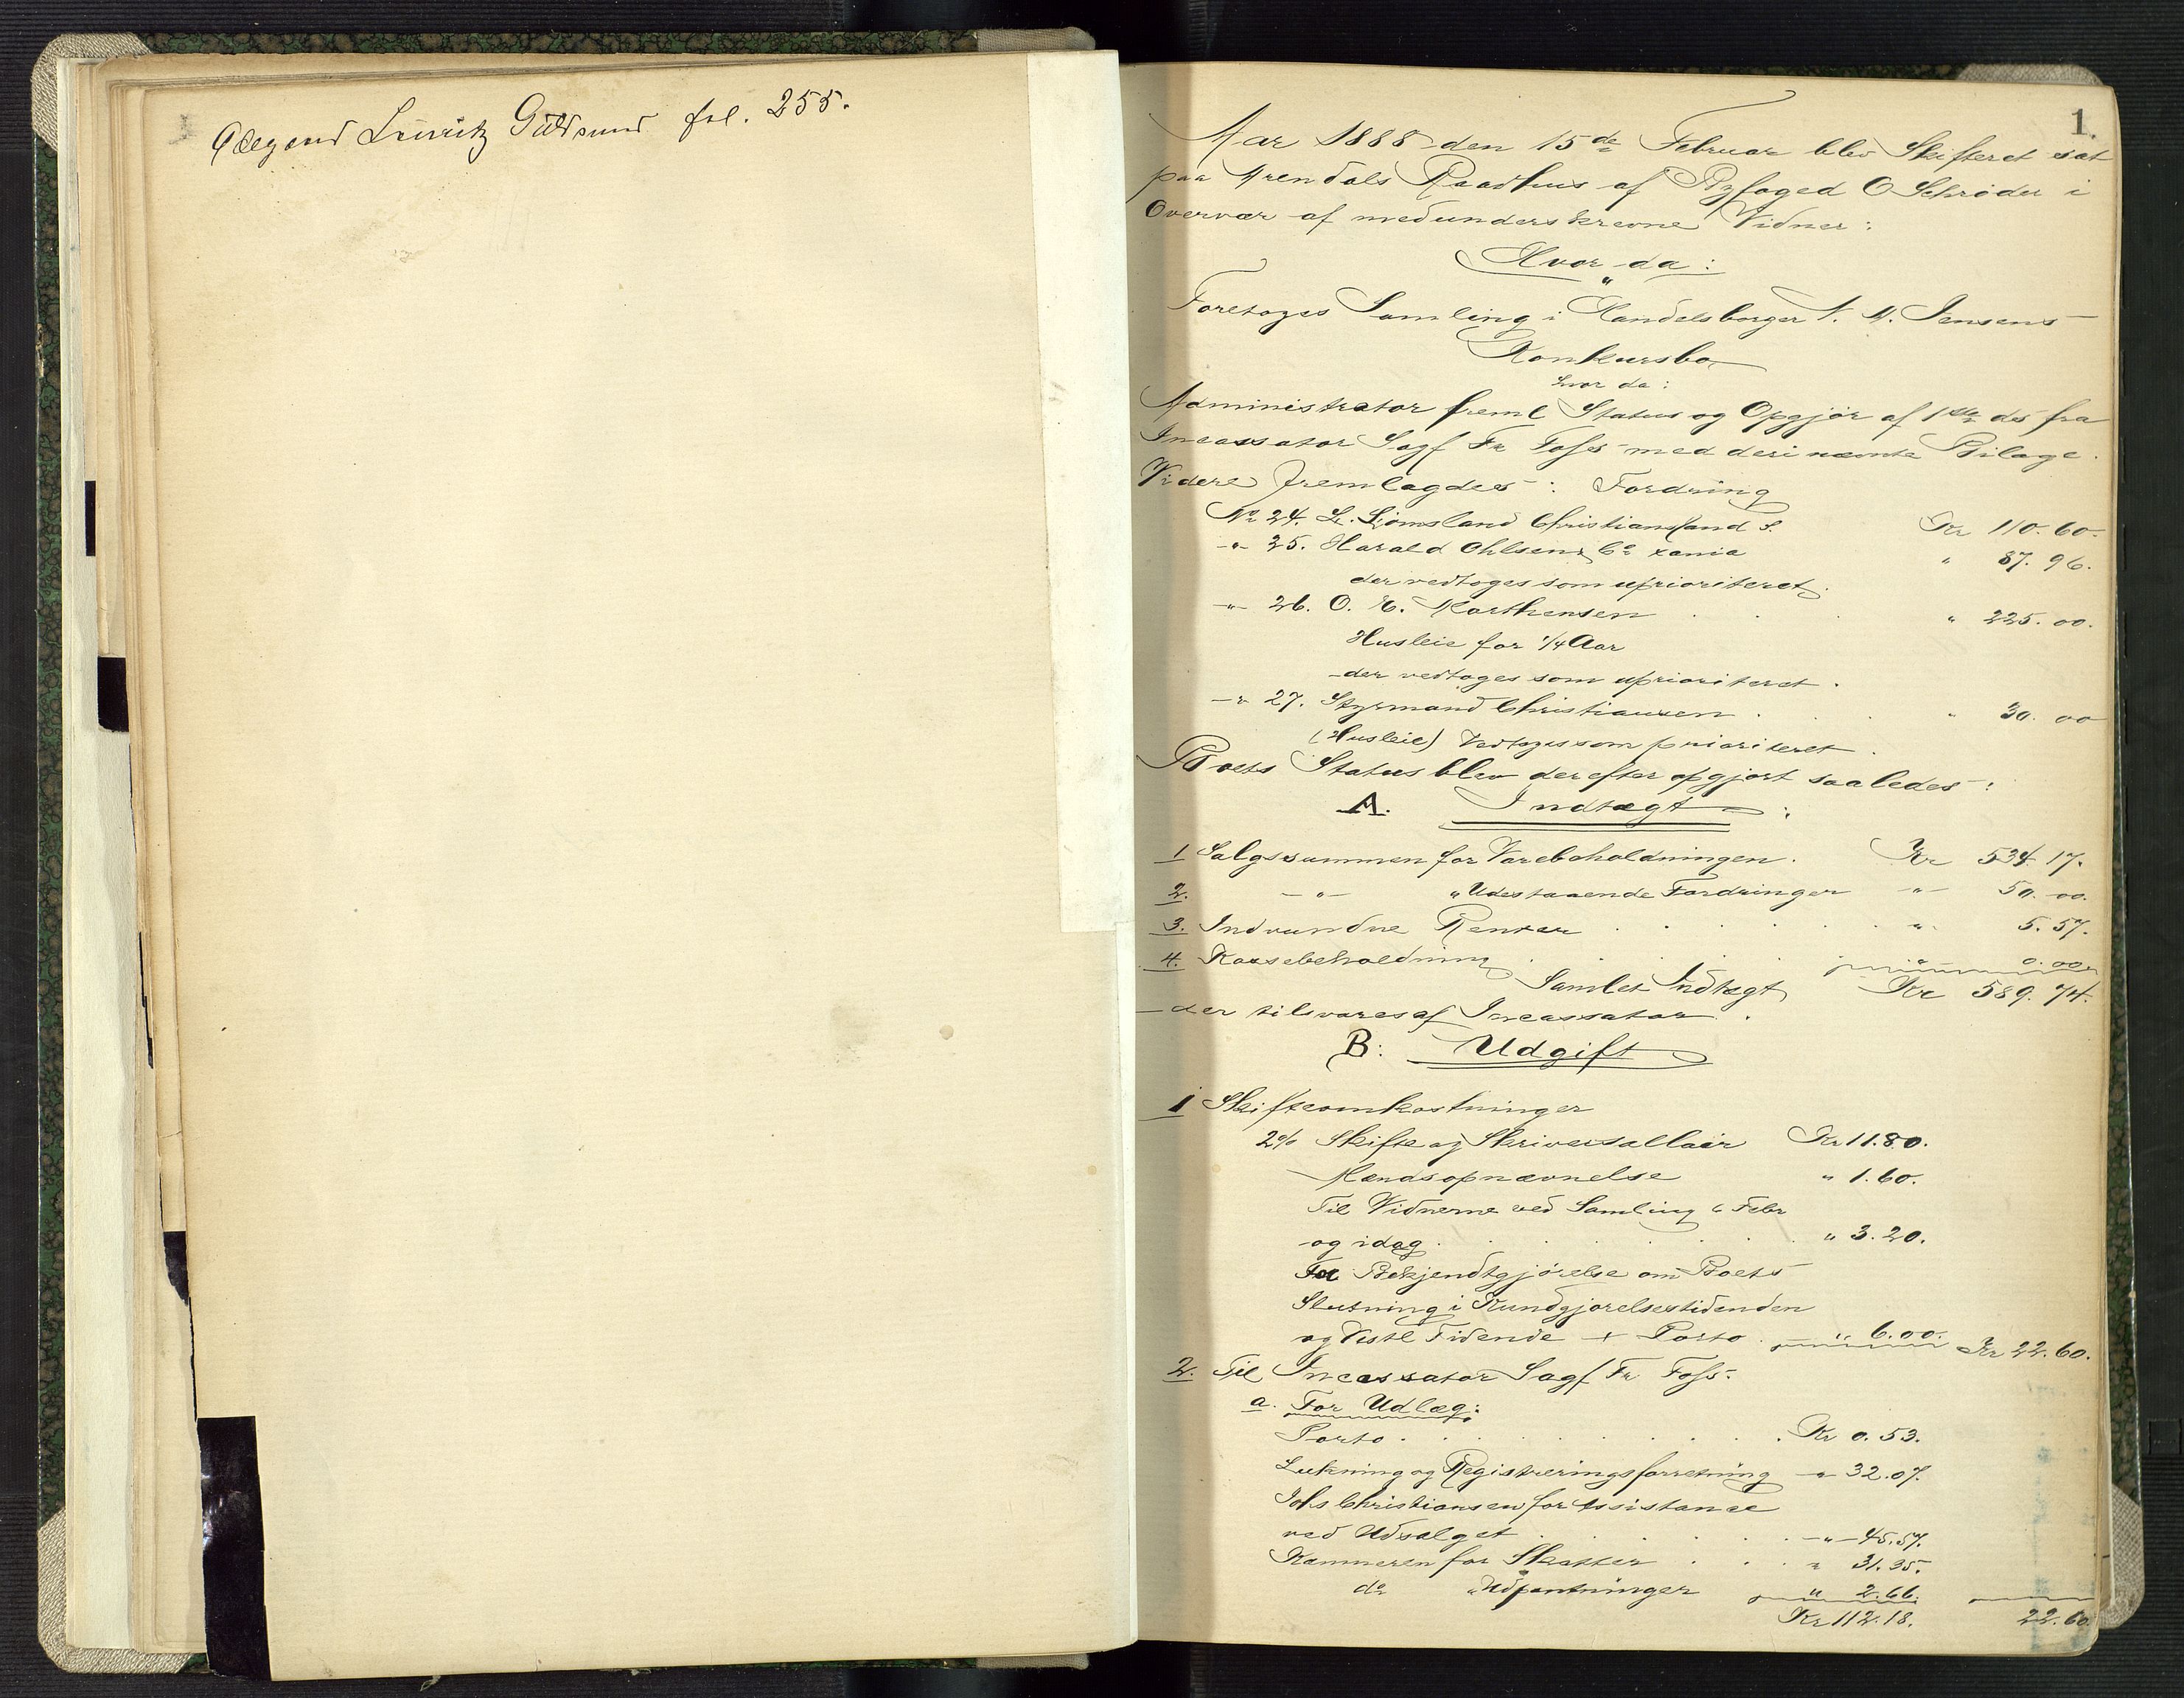 fol. 255.
1.
Aar 1888 den 15de Februar blev Skifteret sat
paa Arendals Raadhus af Byfoged O Schrøder i
Overvær af medunderskrevne Vidner:
Hvor da:
Foretoges Samling i Handelsborger N. A. Jensens
Konkursbo
hvor da:
Administrator freml Status og Opgjør af 1ste ds fra
Incassator Sagf Fr Foss med deri nævnte Bilage.
Videre fremlagdes: Fordring
No 24. L. Ljomsland Christianssand S. Kr 110. 60.
-"- 25. Harald Ohlsen & Co Xania " 87. 96.
der vedtoges som uprioriteret.
-"- 26. O. E. Marthensen " 225. 00.
Husleie for 1/4 Aar
der vedtoges som uprioriteret.
-"- 27. Styrmand Christiansen " 30. 00
(Husleie) Vedtoges som prioriteret.
Boets Status blev derefter opgjort saaledes:
A. Indtægt:
1 Salgssummen for Varebeholdningen. Kr 534. 17.
2. -"- " Udestaaende Fordringer -"- 50. 00.
3. Indvundne Renter -"- 5. 57.
4. Kassebeholdning " 0. 00.
Samlet Indtægt Kr 589. 74.
der tilsvares af Incassator.
B: Udgift
1 Skifteomkostninger
2% Skifte og Skriversallair Kr 11. 80.
Mændsopnævnelse " 1. 60.
Til Vidnerne ved Samling 6 Febr
og idag " 3. 20.
For Bekjendtgjørelse om Boets
Slutning i Kundgjørelsestidenden
og Vestl Tidende + Porto " 6. 00. Kr 22. 60.
2. Til Incassator Sagf Fr Foss.
a. For Udlæg:
Porto Kr 0. 53.
Lukning og Registreringsforretning -"- 32. 07.
Johs Christiansen for Assistance
ved Udsalget -"- 45. 57.
Kæmneren for Skatter " 31. 35.
do " Udpantninger " 2. 66.
Kr 112. 18. 22. 60.